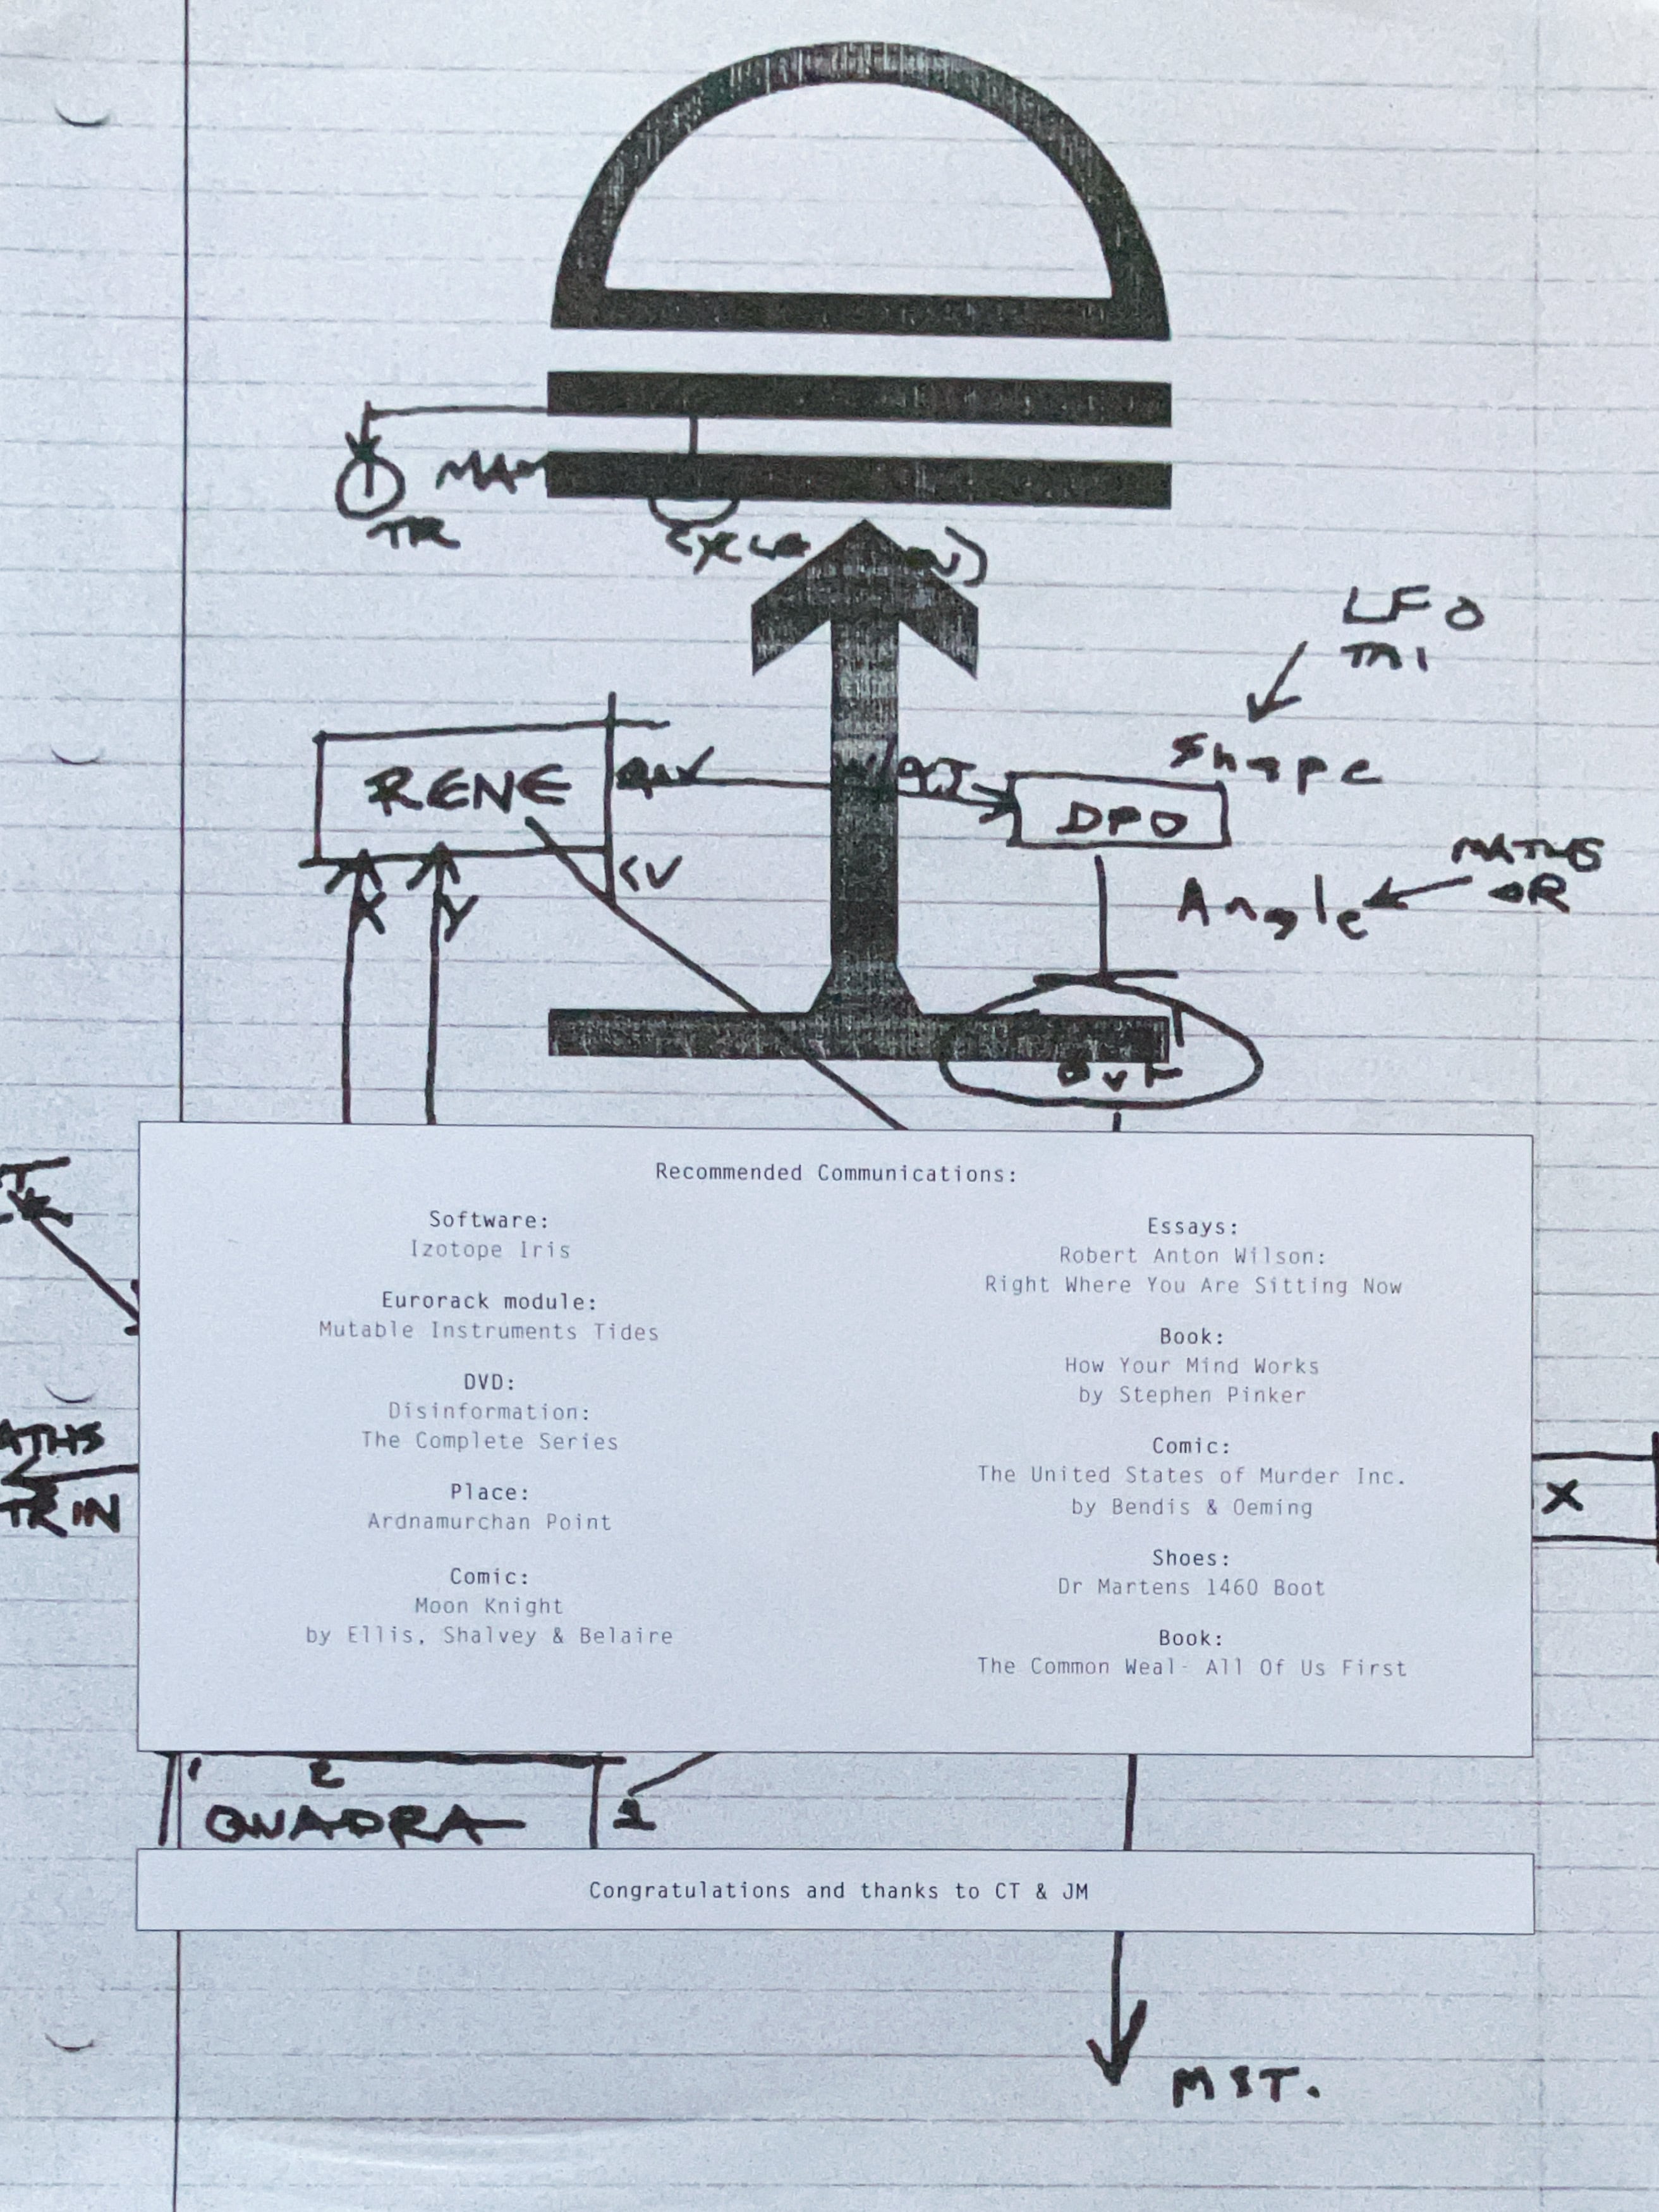 TR
LFO
TRI
Shape
RENE
DPO
CV
X Y
Angle
MATHS
OR
Out
Recommended Communications:
Software:
Izotope Iris
Eurorack module:
Mutable Instruments Tides
DVD:
Disinformation:
The Complete Series
Place:
Ardnamurchan Point
Comic:
Moon Knight
by Ellis, Shalvey & Belaire
Essays:
Robert Anton Wilson:
Right Where You Are Sitting Now
Book:
How Your Mind Works
by Stephen Pinker
Comic:
The United States of Murder Inc.
by Bendis & Oeming
Shoes:
Dr Martens 1460 Boot
Book:
The Common Weal- All Of Us First
ATHS
TR IN
X
1 2
QUADRA
1
Congratulations and thanks to CT & JM
MST.